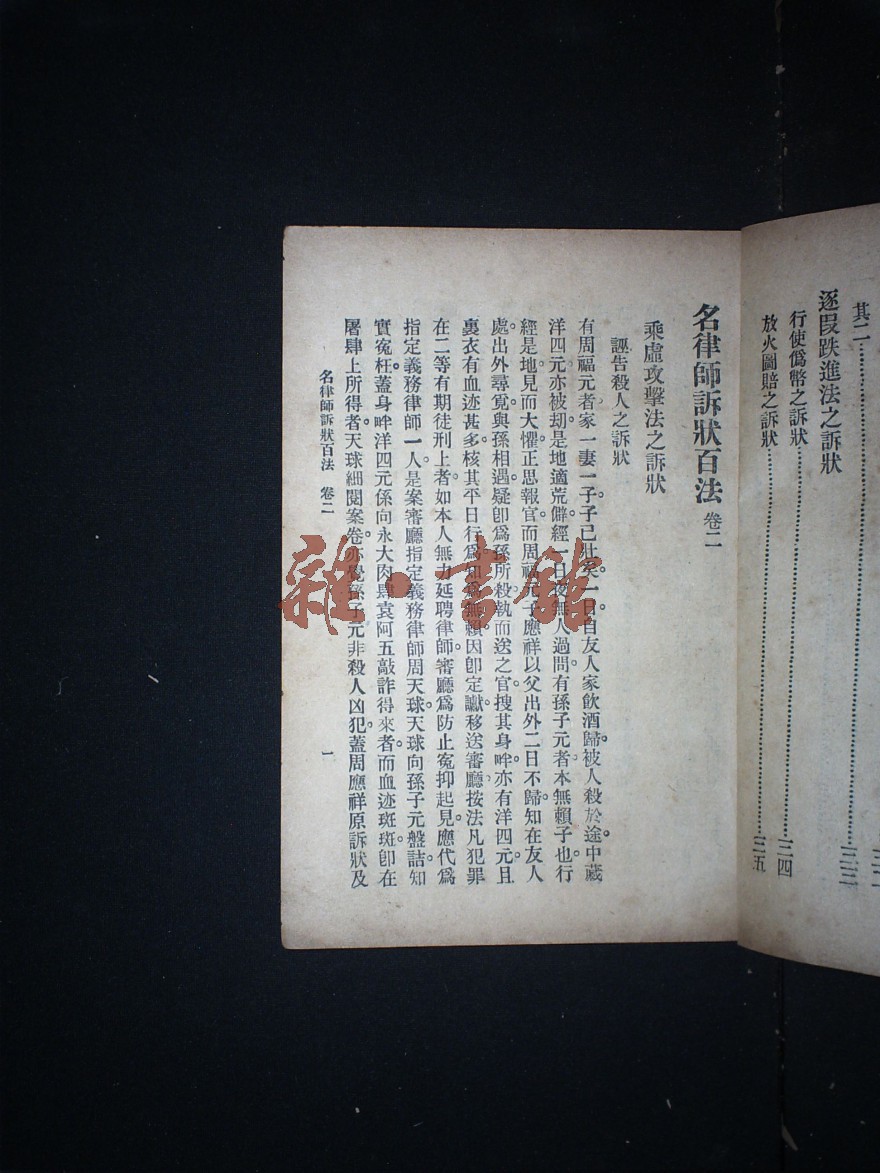 其二………………三三
逐段跌進法之訴狀
行使僞幣之訴狀………………三四
放火圖賠之訴狀………………三五
名律師訴狀百法 卷二
乘虛攻擊法之訴狀
誣告殺人之訴狀
有周福元者家一妻一子子已壯矣一日自友人家飲酒歸被人殺於途中藏
洋四元亦被劫是地適荒僻經一日夜無人過問有孫子元者本無賴子也行
經是地見而大懼正思報官而周福元子應祥以父出外二日不歸知在友人
處出外尋覓與孫相遇疑卽爲孫所殺執而送之官搜其身畔亦有洋四元且
裏衣有血迹甚多核其平日行爲知爲無賴因卽定讞移送審廳按法凡犯罪
在二等有期徒刑上者如本人無力延聘律師審廳爲防止冤抑起見應代爲
指定義務律師一人是案審廳指定義務律師周天球天球向孫子元盤詰知
實冤枉蓋身畔洋四元係向永大肉肆袁阿五敲詐得來者而血迹斑斑卽在
屠肆上所得者天球細閱案卷亦覺孫子元非殺人凶犯蓋周應祥原訴狀及
名律師訴狀百法 卷二
一
雜·書館